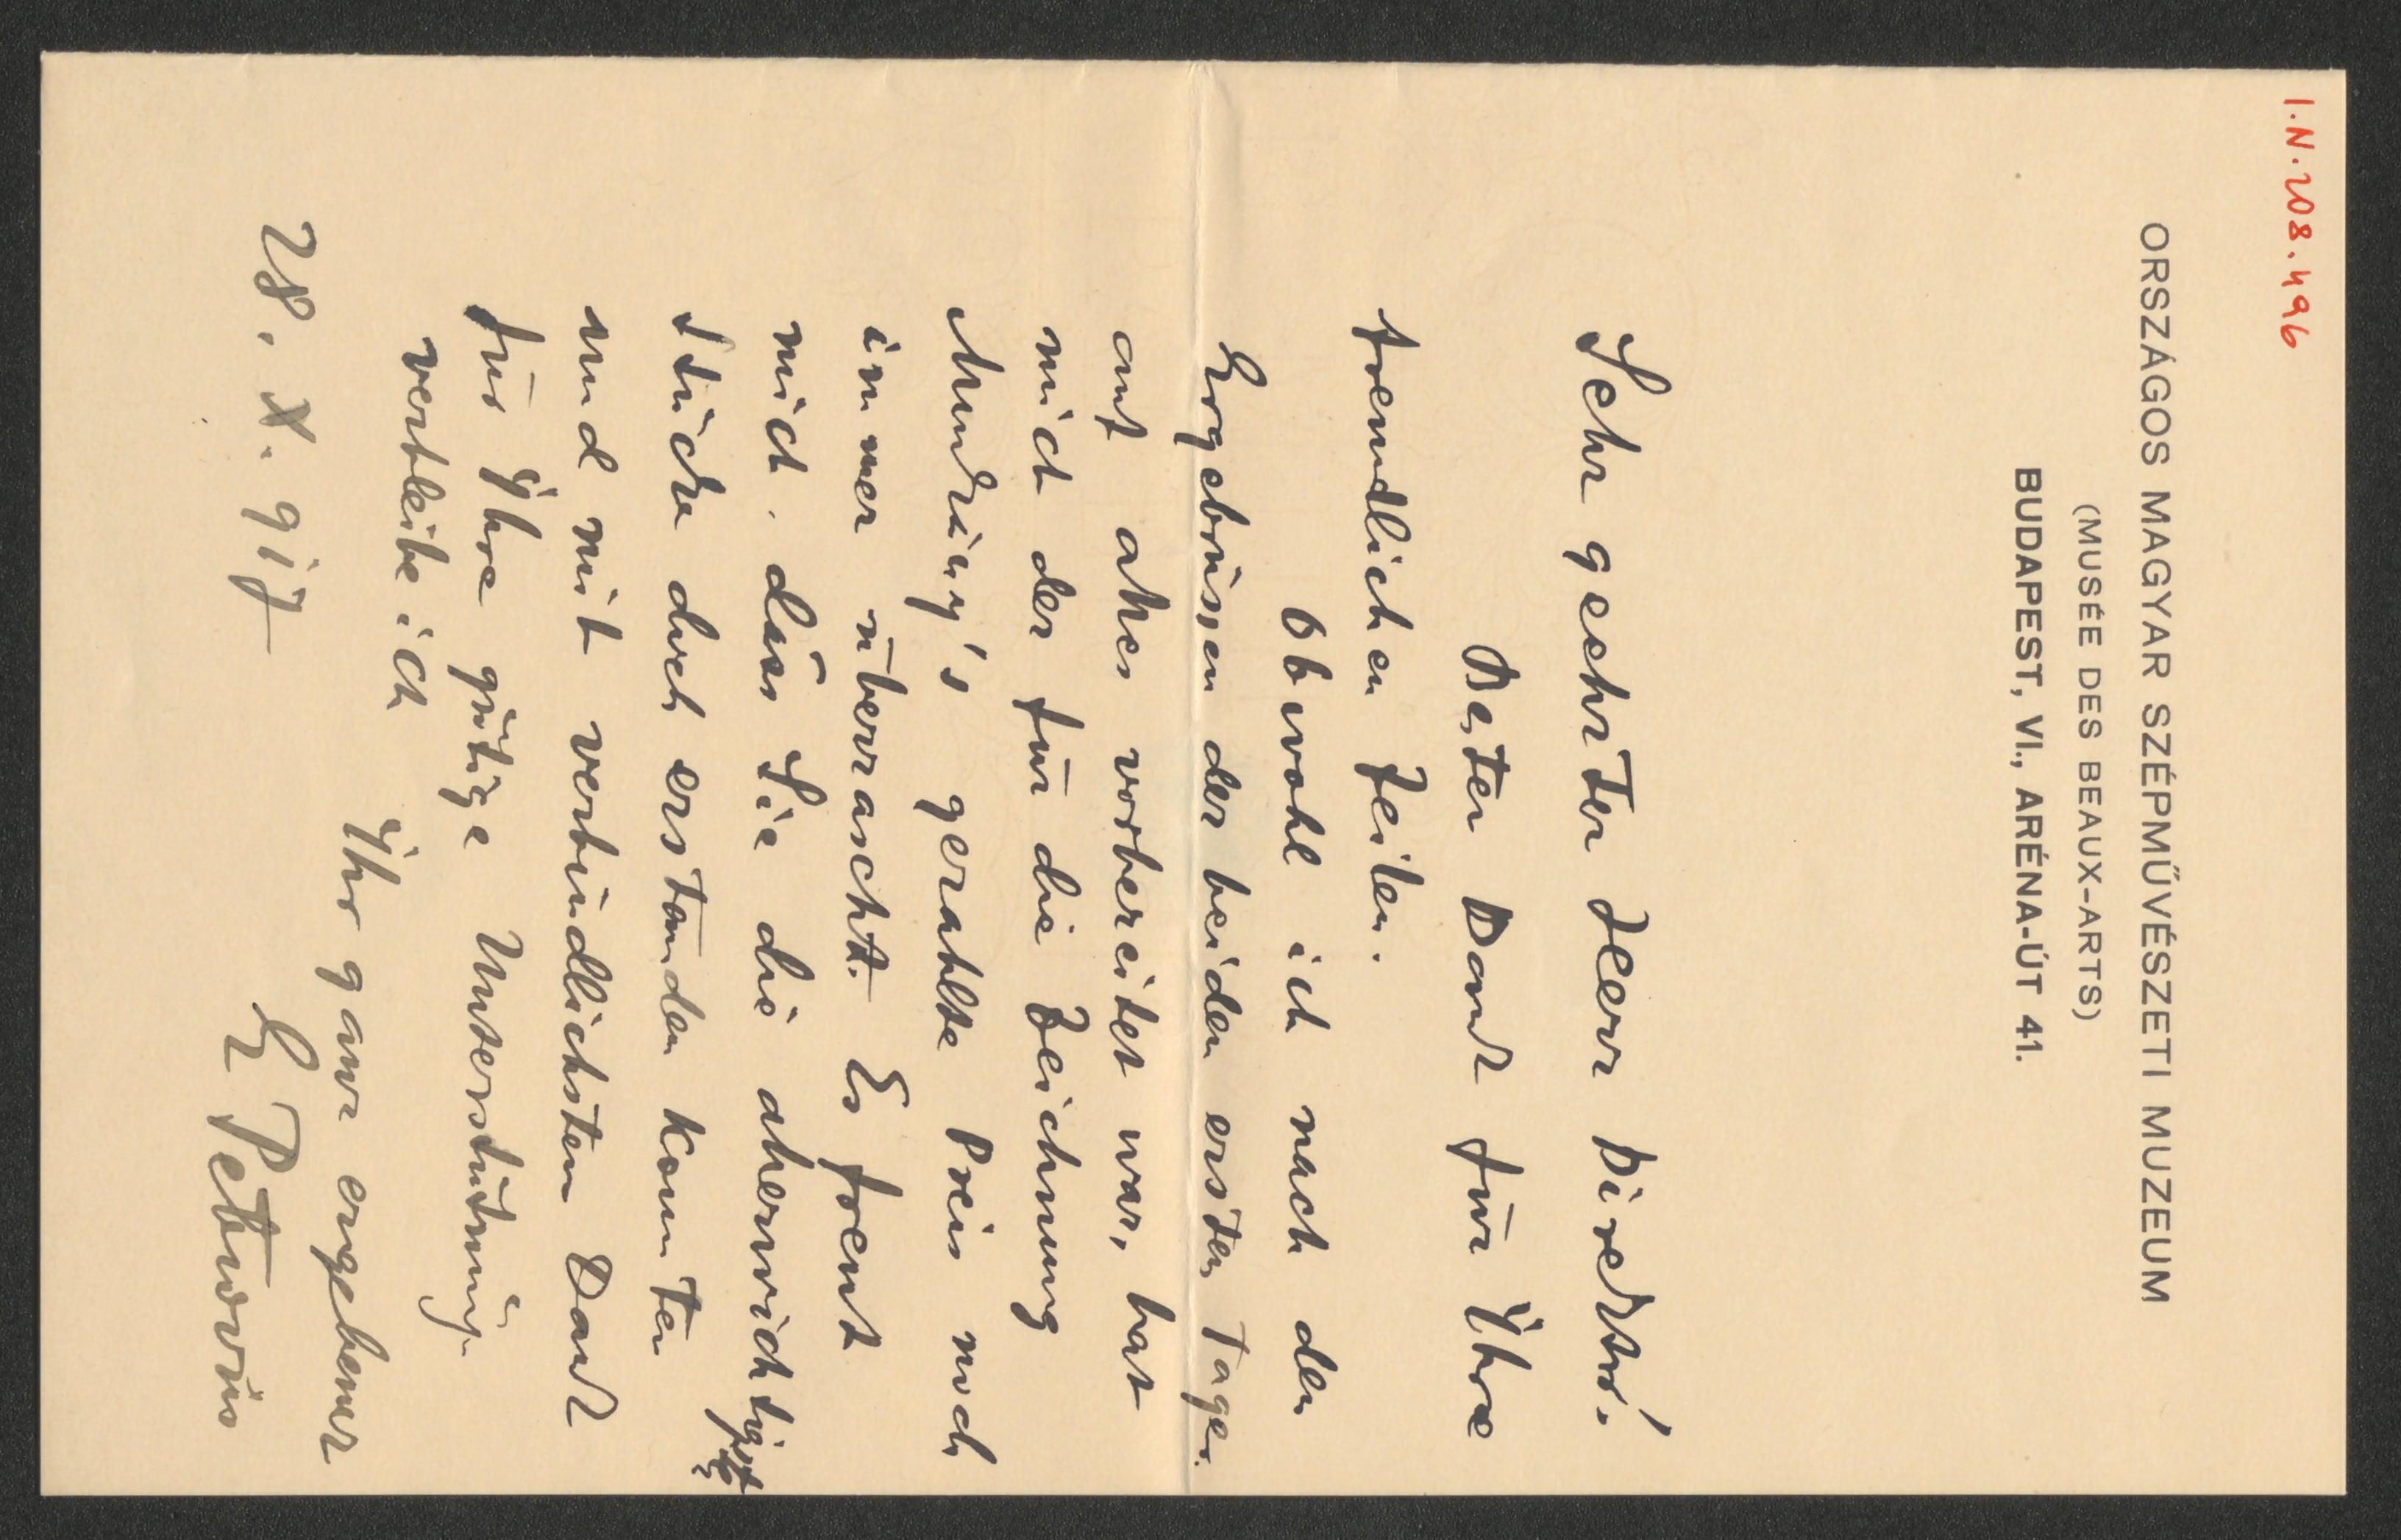 I.N. 208.496
ORSZÁGOS MAGYAR SZÉPMŰVÉSZETI MUZEUM
(MUSÉE DES BEAUX-ARTS)
BUDAPEST, VI., ARÉNA-ÚT 41.
Sehr geehrter Herr Direktor!
Besten Dank für Ihre
freundlichen Zeilen.
Obwohl ich nach den
Ergebnissen der beiden ersten Tage
auf alles vorbereitet war, hat
mich der für die Zeichnung
Munkácsy's gezahlte Preis noch
immer überrascht. Es freut
mich, dass Sie die allerwichtigste
Stücke doch erstanden konnten
und mit verbindlichsten Dank
für Ihre gütige Unterstützung
verbleibe ich
Ihr ganz ergebener
Petrovics
28. X. 917